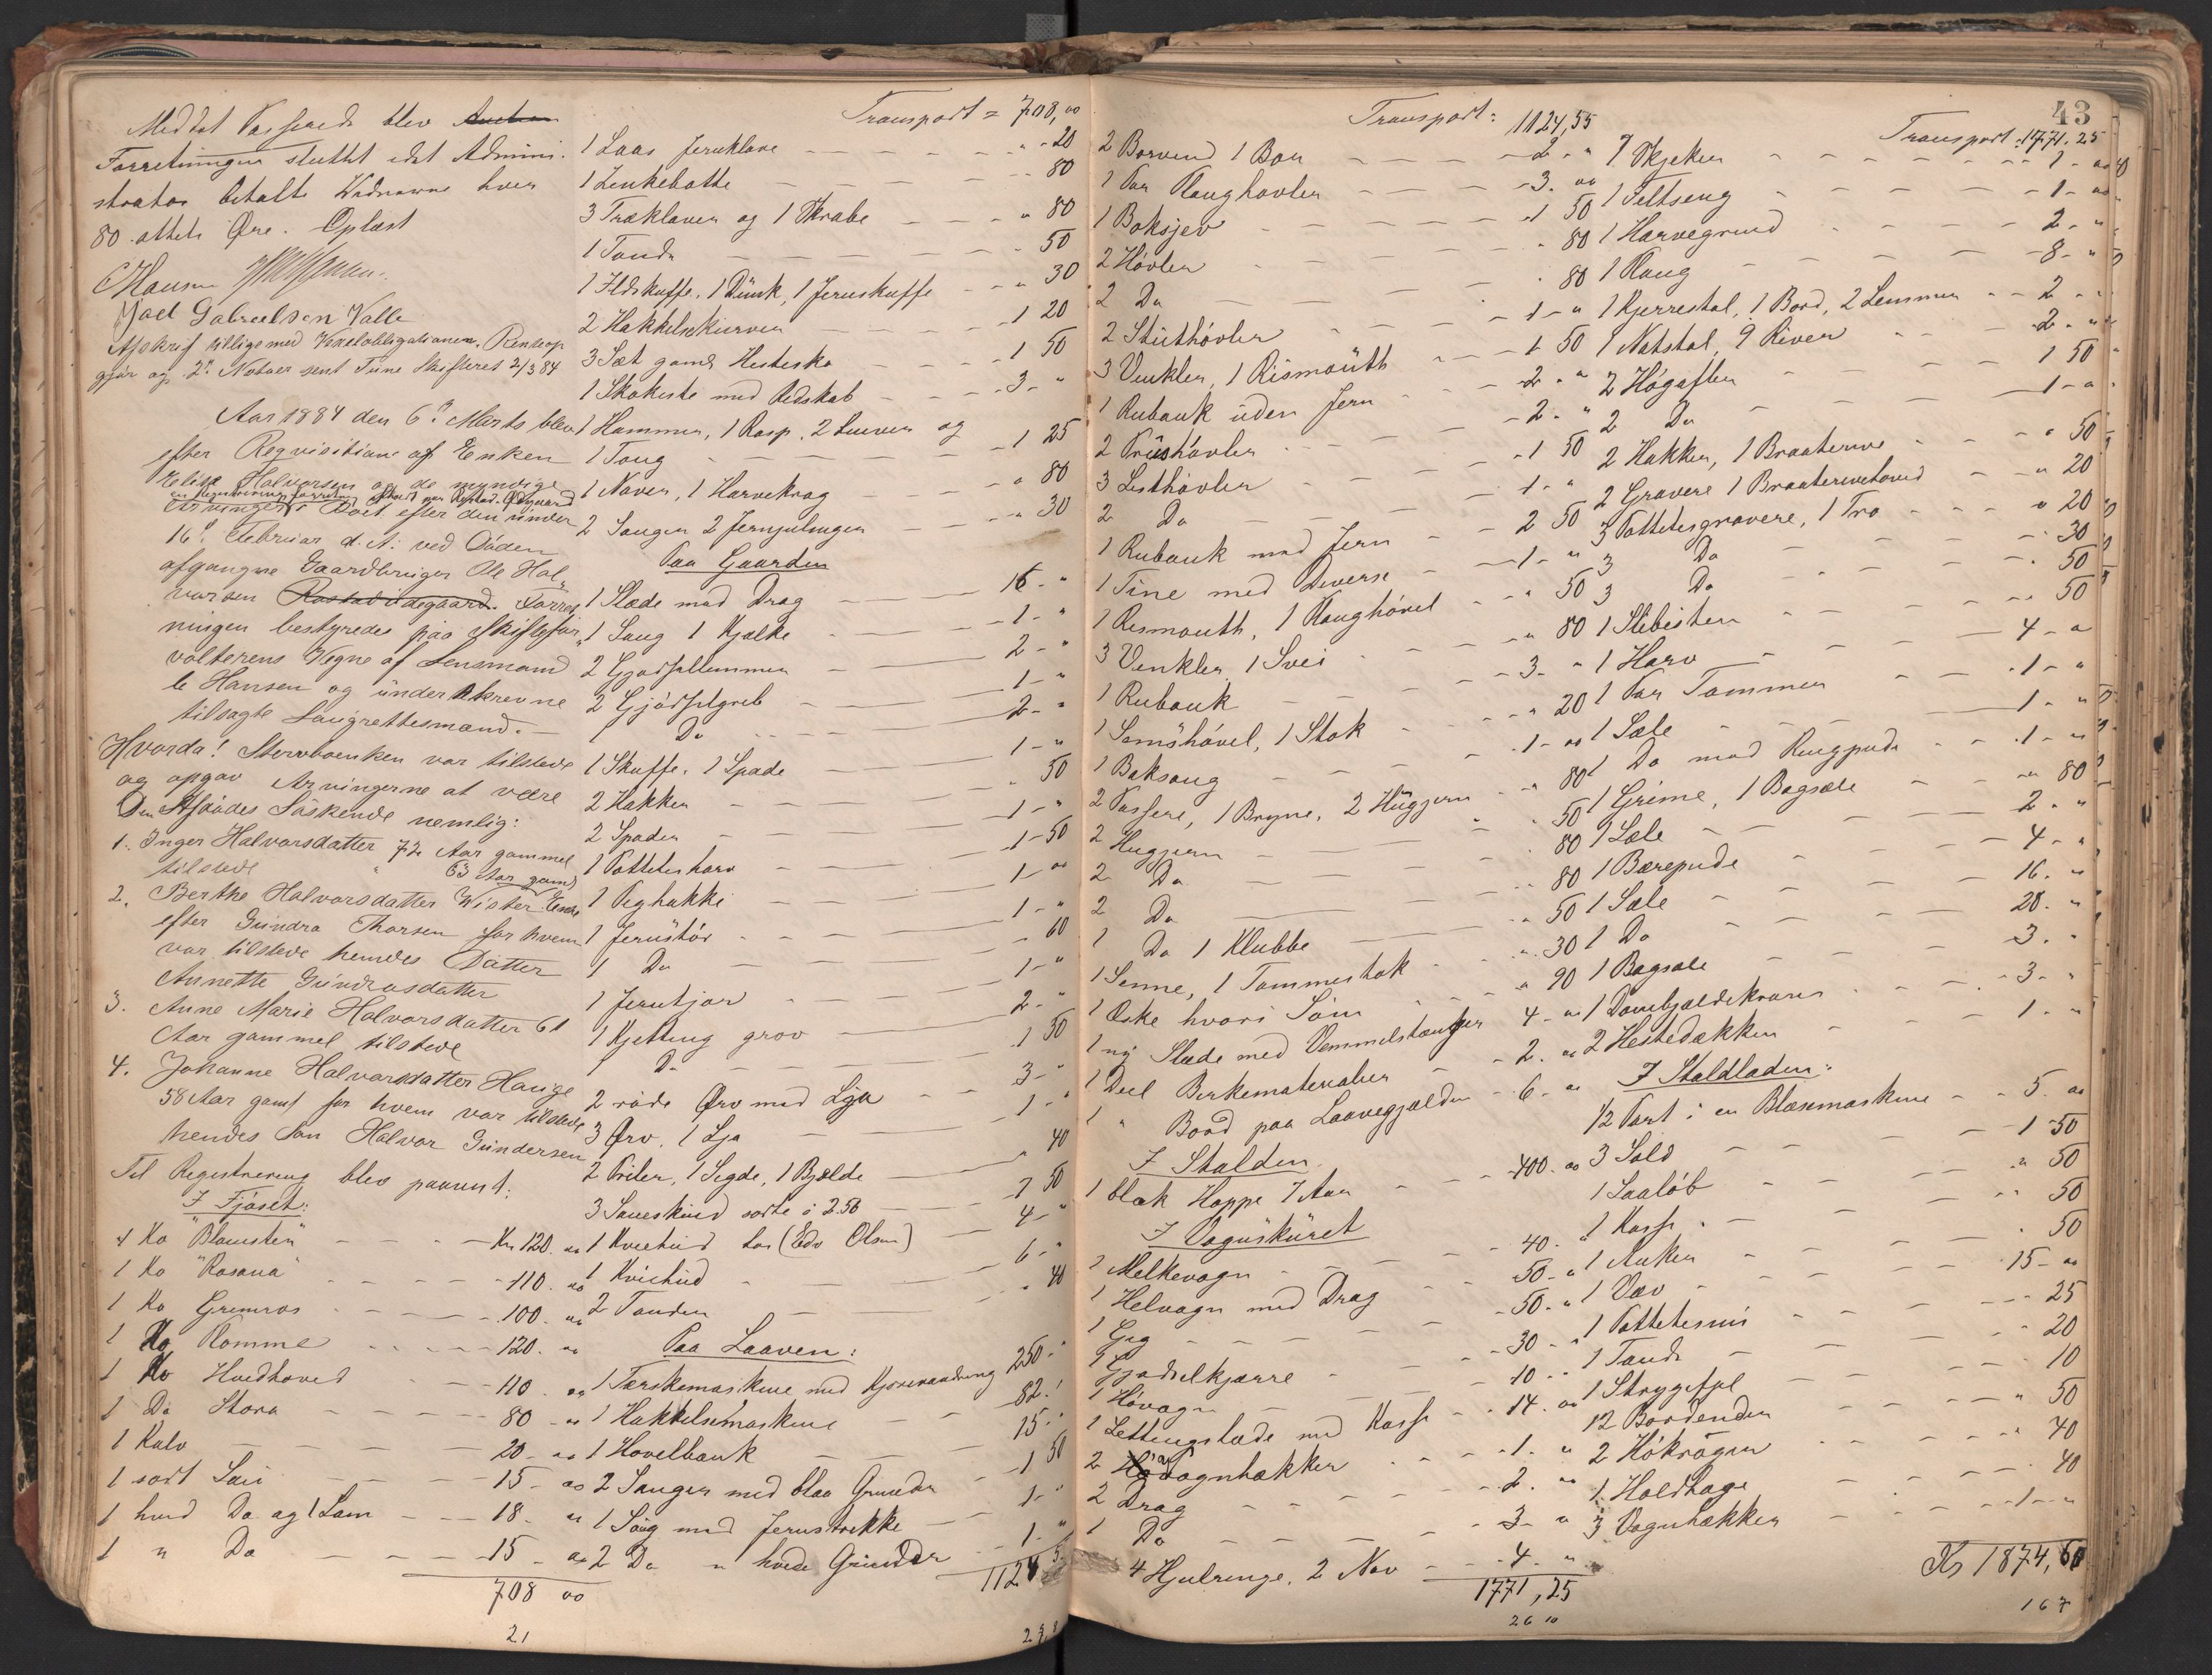 Med det Passerede blev Auction
Forretningen sluttet idet Admini-
strator betalte Widnerne hver
80 otteti Øre. Oplæst
CHansen
Joel Gabrielsen Valle
Afskrift tilligemed Vexelobligationen,
gjør og 2de Notaer sent Tune Skifteret 2/3 84
Aar 1884 den 6te Marts blev
efter Reqvisition af Enken
Elise Halvorsen og de myndige
en Registreringsforretning afholdt paa Rostad Ødegaard
Arvinger i Boet efter den under
16de Februar d. A. ved Døden
afgangne Gaardbruger Ole Hal-
vorsen Rostad Ødegaard. Forret-
ningen bestyredes paa Skiftefor-
valterens Vegne af Lensmand
C Hansen og underskrevne
tilsagte Laugrettesmænd.
Hvorda! Stervboenken var tilstede
og opgav Arvingerne at være
Den Afdødes Søskende nemlig:
1. Inger Halvorsdatter 72 Aar gammel
tilstede " 63 Aar gaml
2. Berthe Halvorsdatter Wister Enke
efter Gundro Thorsen for hvem
var tilstede hendes Datter
Annette Gundrosdatter
3. Anne Marie Halvorsdatter 61
Aar gammel tilstede
4. Johanne Halvorsdatter Hauge
58 Aar gaml for hvem var tilstede
hendes Søn Halvor Gundersen
Til Registrering blev paavist:
I Fjøset:
1 Ko "Blomsten" Kr 120. oo
1 Ko "Rosana" 110. oo
1 Ko Gremros 100. oo
1 Ko Plomme 120. oo
1 Ko Hvidhoved 110 oo
1 Do Stora 80 - oo
1 Kalv 20 - oo
1 sort Sau 15 - oo
1 hvid Do og 1 Lam 18 - "
1 " Do 15 - oo
708 oo
21
Transport = 708,oo
1 Laas Jernklave " - 20
1 Lenkebotte 80
3 Træklaver og 1 Skrabe " 80
1 Tønde 50
1 Ildskuffe, 1 Dunk, 1 Jernskuffe " 30
2 Hakkelsekurver 1 20
3 Sæt gamle Hestesko 1 50
1 Skokiste med Redskab 3 - "
1 Hammer, 1 Rasp, 2 og
1 Tong 1 25
1 Naver, 1 Harvekrog " 80
2 Sauger 2 " 30
Paa Gaarden
1 Slæde med Drag 15 - "
1 Saug 1 Kjælke 1 - "
2 Gjødsellemmer 2 - "
2 Gjødselgreb 1 - "
1 Do 2 - "
1 Skuffe, 1 Spade 1 - "
2 Hakker 50
2 Spader 1 - "
1 Pottetesharv 1 - 50
1 Pighakke 1 - oo
1 Jernstør 1 - "
1 Do 60
1 Jerntjor 1 - "
1 Kjetting grov 2 - "
1 Do 1 50
2 røde Ørv med Lja 3 - "
3 Ørv, 1 Lja 1 - "
2 Priler, 1 Segde, 1 Bjelde " 40
3 Saueskind sorte á 2.50 7 50
1 Kviehud hos (Edv Olsen) 4 - "
1 Kviehud 6 - "
2 Tønder " 40
Paa Laaven:
1 Tærskemaskine med Kjørevandring 250 - "
1 Hakkelsemaskine 82. "
1 Høvelbænk 15 "
2 Sauger med blaa Grinder 1 50
1 Saug med Jernstrikke 1 - "
2 Do " hvide Grinder 1 - "
1124 5
Transport: 1124,55
2 Borvind 1 Bor 2 - "
1 Par Plaughøvler 3. oo
1 Boksjev 1 50
2 Høvler " 80
2 Do " 80
2 Støthøvler 1 - "
3 Vinkler, 1 Rismouth 1 50
1 Rubank uden Jern 2 - "
2 Prüshøvler 2 - "
3 Listhøvler 1 50
2 Do 1 - "
1 Rubank med Jern 2 50
1 Tine med Diverse 1 - "
1 Rismouth, 1 Plaughøvel " 50
3 Vinkler, 1 Svei " 80
1 Rubank 3 - "
1 Semshøvel, 1 Stok " 20
1 Baksaug 1 - oo
2 Passere, 1 Bryne, 2 Huggjern " 80
2 Huggjern " 50
2 Do 80
2 Do 80
1 Do 1 Klubbe " 50
1 Senne, 1 Tommestok " 30
1 Æske hvori Søm " 90
1 ny Slæde med Vemmelstænger 4 - oo
1 Deel Birkematerialer 2. oo
1 " Bord paa Laavegjolden 6. oo
I Stalden
1 blak Hoppe 7 Aar 400. oo
I Vognskuret
1 Melkevogn 40. "
1 Helvogn med Drag 50 - "
1 Gig 50 - "
1 Gjødselkjærre 30 - "
1 Høvogn 10 "
1 Lettingslæde med Kasse 14. oo
2 Høvognhækker 1. "
2 Drag 2. "
1 Do 3 - "
4 Hjulringe, 2 Nav 4. "
1771,25
26 10
43
Transport: 1771.25
1 Skjeker 1 - oo
1 Feltseng 1 - oo
1 Harvegrind 2 - "
1 Plaug 8 - "
1 Kjerrestol, 1 Bord, 2 Lemmer 2 - "
1 Natstol, 9 River 2 - "
2 Høgafler 1 50
2 Do 1 - "
2 Hakker, 1 Braaterive " 50
2 Gravere 1 Braaterivehoved " 20
3 Pottetesgravere, 1 Tro " 20
3 Do 30
3 Do 50
1 Slibesten 50
1 Harv 4 - "
1 Par Tømmer 1 - "
1 Sæle 1 - "
1 Do med Ringpude 1 - "
1 Grime, 1 Bogsæle " 80
1 Sæle 2 - "
1 Bærepude 4 - "
1 Sæle 16. "
1 Do 28. "
1 Bogsæle 3. "
1 Dombjældekrans 3 - "
2 Hestedækken 1. "
I Staldladen:
1/2 Part i en Blæsemaskine 5. oo
3 Sold 1 50
1 Saaløb " 50
1 Kasse " 50
1 Anker " 50
1 Væv 15 - oo
1 Pottetesnu 25
1 Tønde 20
1 Strygefjel 10
12 Bordender " 50
2 Høkroger 40
1 Holdhage 40
3 Vognhækker 1 - "
Kr 1874,60
167